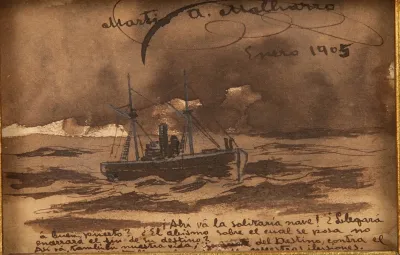 Martín A. Malharro
Enero 1905
¡Ahí vá la solitaria nave! ¿Llegará
á buen puerto? ¿El abismo sobre el cual se posa no
guardará el fin de su destino?
Así vá también nuestra vida, del Destino, contra el
nuestras ilusiones.